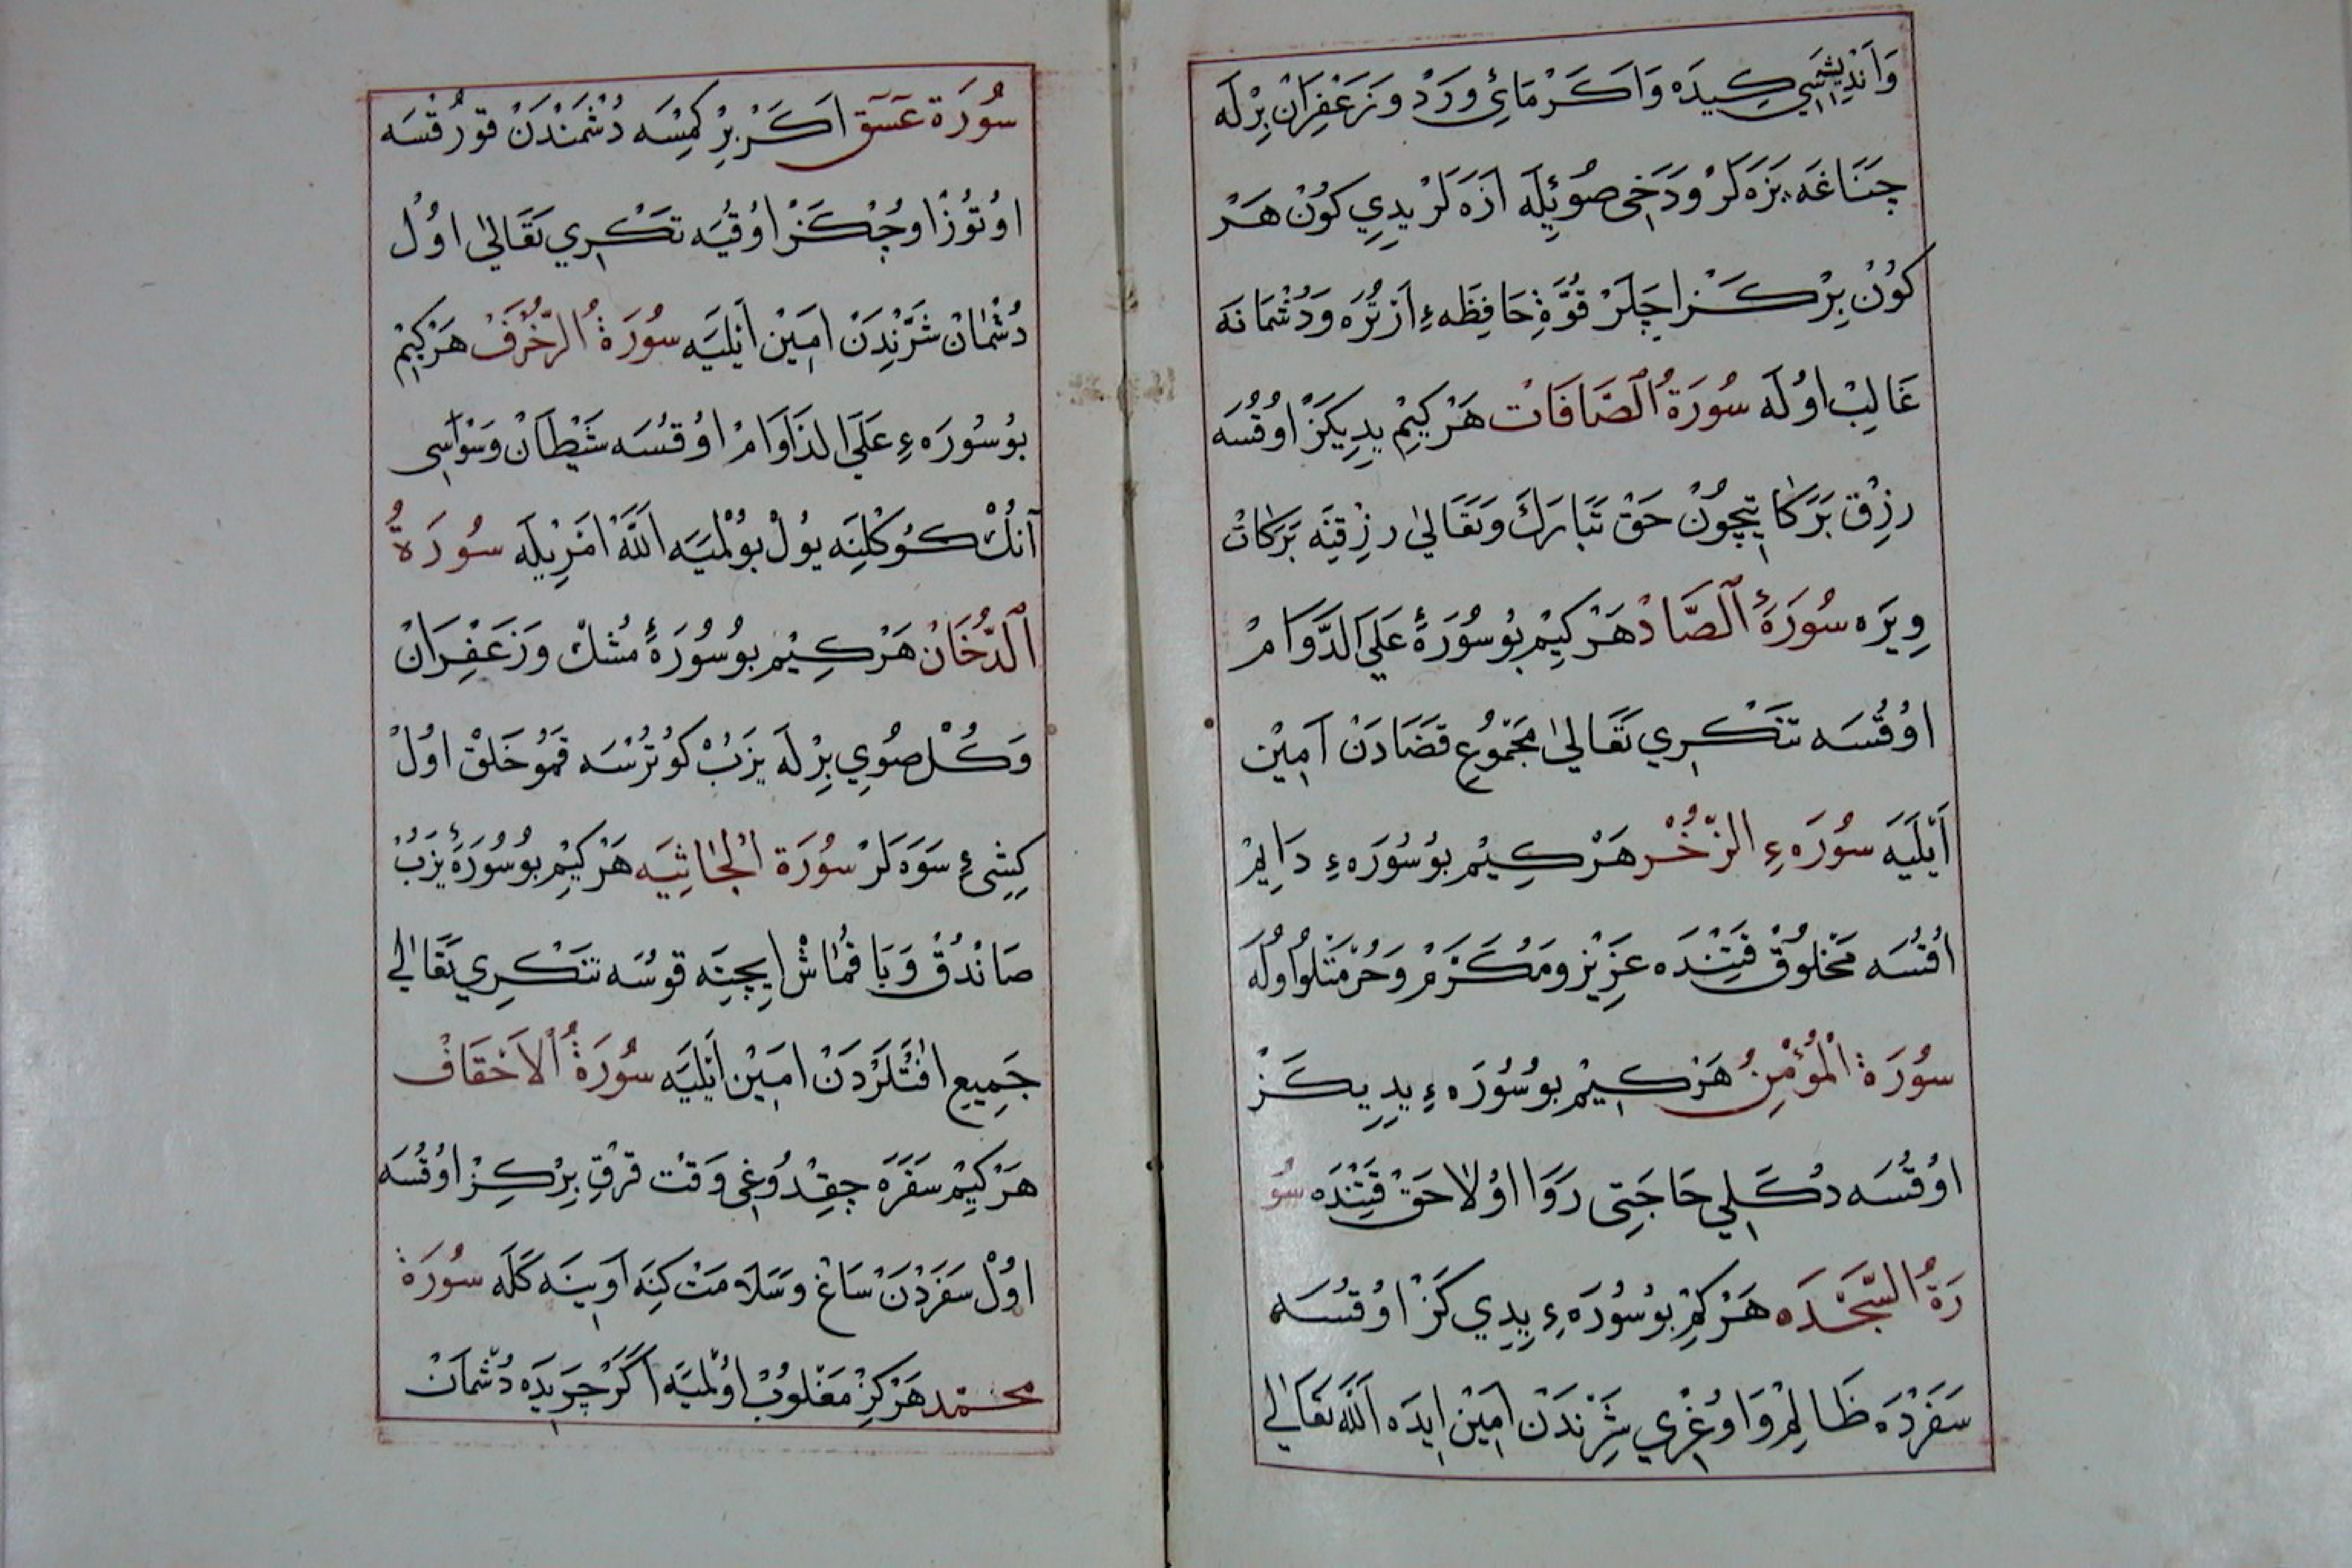 وَاَنْدِيشَسِي كِيدَه وَاَكَرْ مَائِ وَرَدْ وَزَعْفِرَانْ بِرْلَه
چَنَاغَه يَزَه لَرْ وَدَخِى صُوئِيلَه اَزَه لَرْ يِدِي كُونْ هَرْ
كُونْ بِرْ كَزْ اِچَلَرْ قُوَّةِ حَافِظَه ءِ اَرْتُرَه وَدُشْمَانَه
غَالِبْ اوُلَه سُورَةُ الصَّافَاتْ هَرْ كِيمْ يِدِيكَزْ اوُقُسَه
رِزْق بَرَكَاتِيچُونْ حَقْ تَبَارَكَ وَتَعَالىٰ رِزْقِنَه بَرَكَاتْ
وِيرَه سُورَةُ الصَّادْ هَرْ كِيمْ بُو سُورَهٔ عَلَى الدَّوَامْ
اوُقُسَه تَنْكْرِي تَعَالىٰ مَجْمُوعِ قَضَادَنْ اَمِيْن
اَيْلَيَه سُورَه ءِ الزُّخُرْ هَرْ كِيمْ بُو سُورَه ءِ دَايِمْ
اُقُسَه مَخْلُوقْ قَتِنْدَه عَزِيْز وَمُكَرَّمْ وَحُرْمَتْلُو اوُلَه
سُورَةُ الْمُؤْمِنُ هَرْ كِيمْ بُو سُورَه ءِ يِدِيكَزْ
اوُقُسَه دُكَلِي حَاجَتِى رَوَا اوُلَا حَقْ قَتِنْدَه سُو
رَةُ السَّجْدَه هَرْ كِمْ بُو سُورَه ءِ يِدِي كَزْ اوُقُسَه
سَفَرْدَه ظَالِمْ وَاوُغْرِي شَرِّنْدَنْ اَمِيْن اِيدَه اَللّٰه تَعَالىٰ
سُورَة عَسَقَ اَكَرْ بِرْ كِمْسَه دُشْمَنْدَنْ قُورْقْسَه
اوُتُوزْ اوُچْ كَزْ اوُقُيَه تَكْرِي تَعَالىٰ اوُلْ
دُشْمَانْ شَرِّنْدَنْ اَمِيْن اَيْلَيَه سُورَةُ الزُّخْرُفْ هَرْ كِيمْ
بُو سُورَه ءِ عَلَى الدَاوَامْ اوُقُسَه شَيْطَانْ وَسْوَاسِى
آنُكْ كُوكْلِنَه يُولْ بُولْمَيَه اَللّٰه اَمْرِيلَه سُورَةُ
الدُّخَانْ هَرْ كِيْم بُو سُورَهٔ مُشْكْ وَزَعْفِرَانْ
وَكُلْ صُويِ بِرْلَه يَزُبْ كُوتُرْسَه قَمُو خَلْقْ اوُلْ
كِشِى ءِ سَوَه لَرْ سُورَة الْجَاثِيَه هَرْ كِيمْ بُو سُورَهٔ يَزُبْ
صَانْدُقْ وَيَا قُمَاشْ اِيچِنَه قُوسَه تَنْكْرِي تَعَالىٰ
جَمِيعِ اٰفَتْلَرْدَنْ اَمِيْن اَيْلَيَه سُورَةُ الْاَحْقَافْ
هَرْ كِيمْ سَفَرَه چِقْدُوغِى وَقْت قِرْقْ بِرْ كِزْ اوُقُسَه
اوُلْ سَفَرْدَنْ سَاغْ وَسَلَامَتْ كِنَه اَوِينَه كَلَه سُورَة
مُحَمَّد هَرْ كِزْ مَغْلُوبْ اوُلْمَيَه اَكَرْ چَرِيدَه دُشْمَانْ